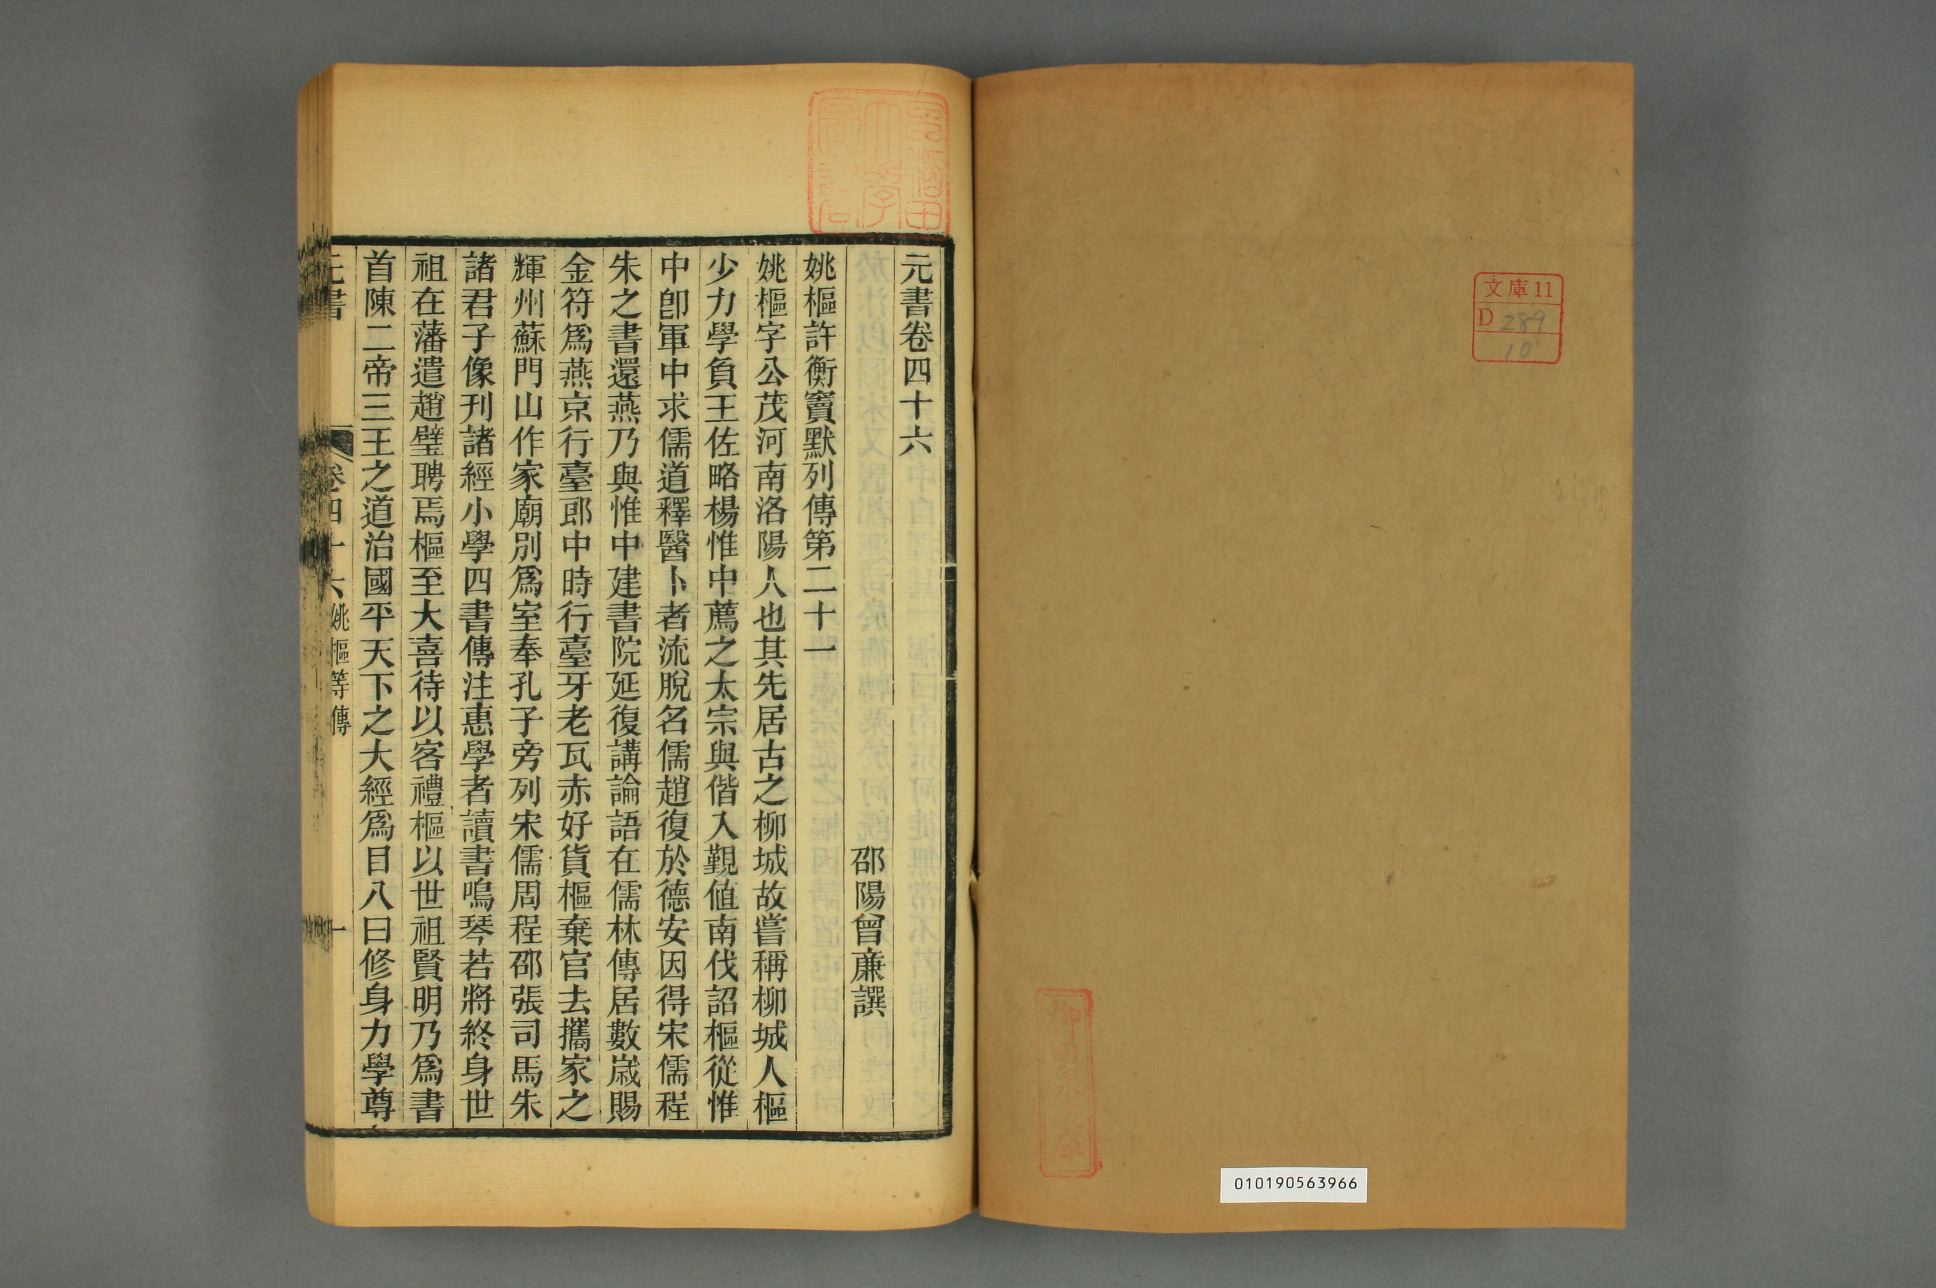 文庫11
D 289
10
010190563966
早稲田
大學
圖書
元書卷四十六
邵陽曾廉譔
姚樞許衡竇默列傳第二十一
姚樞字公茂河南洛陽人也其先居古之柳城故嘗稱柳城人樞
少力學負王佐略楊惟中薦之太宗與偕入覲値南伐詔樞從惟
中卽軍中求儒道釋醫卜者流脫名儒趙復於德安因得宋儒程
朱之書還燕乃與惟中建書院延復講論語在儒林傳居數歲賜
金符爲燕京行臺郎中時行臺牙老瓦赤好貨樞棄官去攜家之
輝州蘇門山作家廟別爲室奉孔子旁列宋儒周程邵張司馬朱
諸君子像刊諸經小學四書傳注惠學者讀書鳴琴若將終身世
祖在藩遣趙璧聘焉樞至大喜待以客禮樞以世祖賢明乃爲書
首陳二帝三王之道治國平天下之大經爲目八曰修身力學尊
元書 卷四十六 姚樞等傳 一